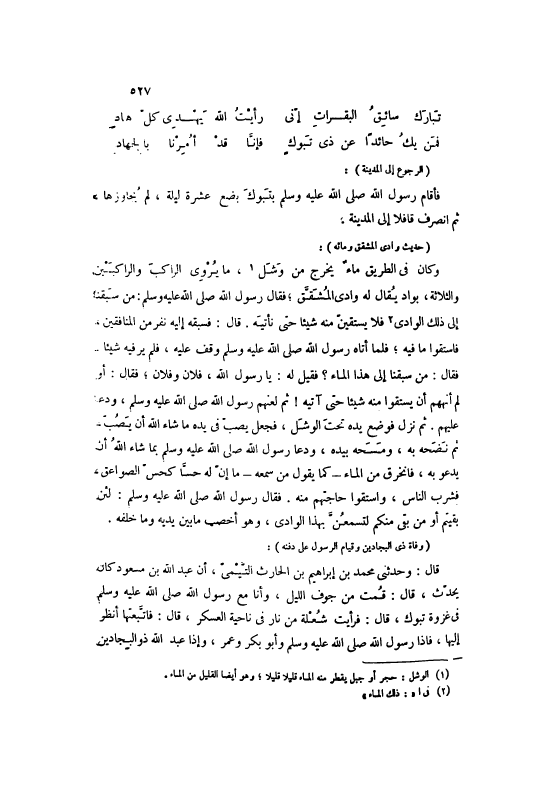 ٥٢٧
تبارك سائقُ البقراتِ إنّى رأيْتُ اللّه يَهْدِى كلّ هادِ
فمَن يكُ حائدًا عن ذى تبوكٍ فإنَّا قدْ أُمِرْنا بالجهادِ
( الرجوع إلى المدينة ) :
فأقام رسول اللّه صلى اللّه عليه وسلم بتبوكَ بضع عشرة ليلة ، لم يُجاوزها ،
ثم انصرف قافلا إلى المدينة .
( حديث وادى المشقق ومائه ) :
وكان فى الطريق ماءٌ يخرج من وَشَل ١ ، ما يُرْوِى الراكبَ والراكبَيْن
والثلاثة ، بواد يُقال له وادى المُشَقَّق ؛ فقال رسول اللّه صلى اللّه عليه وسلم : من سبقنا
إلى ذلك الوادى ٢ فلا يستقينّ منه شيئا حتى نأتيَه . قال : فسبقه إليه نفر من المنافقين ،
فاستقوا ما فيه ؛ فلما أتاه رسول اللّه صلى اللّه عليه وسلم وقف عليه ، فلم ير فيه شيئا .
فقال : من سبقنا إلى هذا الماء ؟ فقيل له : يا رسول اللّه ، فلان وفلان ؛ فقال : أو
لم أنههم أن يستقوا منه شيئا حتى آتيه ! ثم لعنهم رسول اللّه صلى اللّه عليه وسلم ، ودعا
عليهم . ثم نزل فوضع يده تحتَ الوشَل ، فجعل يصبّ فى يده ما شاء اللّه أن يَصُبّ ،
ثم نَضَحه به ، ومَسَحه بيده ، ودعا رسول اللّه صلى اللّه عليه وسلم بما شاء اللّهُ أن
يدعو به ، فانخرق من الماء ــ كما يقول من سمعه ــ ما إنّ له حسًّا كحسّ الصواعق ،
فشرب الناس ، واستقوا حاجتهم منه . فقال رسول اللّه صلى اللّه عليه وسلم : لئن
بقيتم أو من بقى منكم لتسمعُنَّ بهذا الوادى ، وهو أخصب مابين يديه وما خلفه .
( وفاة ذى البجادين وقيام الرسول على دفنه ) :
قال : وحدثنى محمد بن إبراهيم بن الحارث التَّيْمىّ ، أن عبد اللّه بن مسعود كان
يحدّث ، قال : قُمت من جوف الليل ، وأنا مع رسول اللّه صلى اللّه عليه وسلم
فى غزوة تبوك ، قال : فرأيت شُعْلة من نار فى ناحية العسكر ، قال : فاتَّبعتها أنظر
إليها ، فاذا رسول اللّه صلى اللّه عليه وسلم وأبو بكر وعمر ، وإذا عبد اللّه ذو البِجادين
(١) الوشل : حجر أو جبل يقطر منه الماء قليلا قليلا ؛ وهو أيضا القليل من الماء .
(٢) فى ا : ذلك الماء »